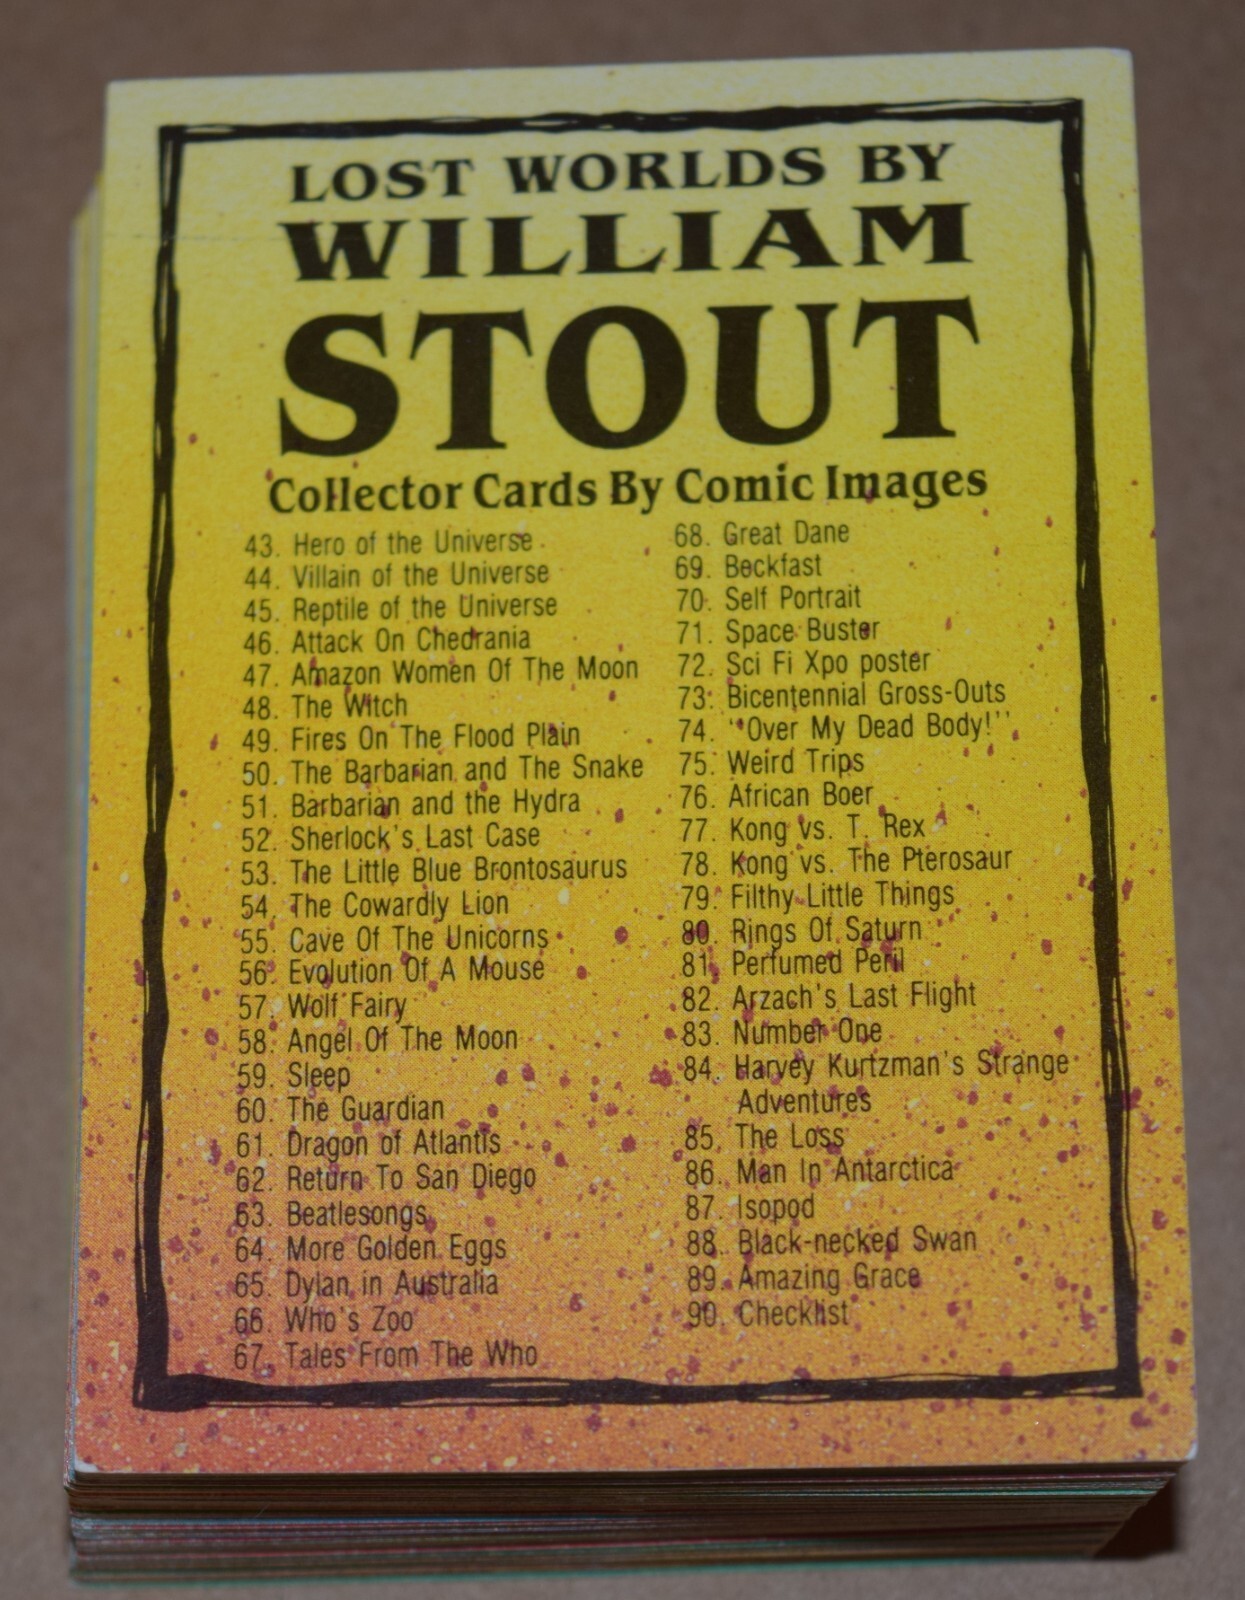 LOST WORLDS BY
WILLIAM
STOUT
Collector Cards By Comic Images
43. Hero of the Universe
44. Villain of the Universe
45. Reptile of the Universe
46. Attack On Chedrania
47. Amazon Women Of The Moon
48. The Witch
49. Fires On The Flood Plain
50. The Barbarian and The Snake
51. Barbarian and the Hydra
52. Sherlock's Last Case
53. The Little Blue Brontosaurus
54. The Cowardly Lion
55. Cave Of The Unicorns
56. Evolution Of A Mouse
57. Wolf Fairy
58. Angel Of The Moon
59. Sleep
60. The Guardian
61. Dragon of Atlantis
62. Return To San Diego
63. Beatlesongs
64. More Golden Eggs
65. Dylan in Australia
66. Who's Zoo
67. Tales From The Who
68. Great Dane
69. Beckfast
70. Self Portrait
71. Space Buster
72. Sci Fi Xpo poster
73. Bicentennial Gross-Outs
74. "Over My Dead Body!"
75. Weird Trips
76. African Boer
77. Kong vs. T. Rex
78. Kong vs. The Pterosaur
79. Filthy Little Things
80. Rings Of Saturn
81. Perfumed Peril
82. Arzach's Last Flight
83. Number One
84. Harvey Kurtzman's Strange
Adventures
85. The Loss
86. Man In Antarctica
87. Isopod
88. Black-necked Swan
89. Amazing Grace
90. Checklist